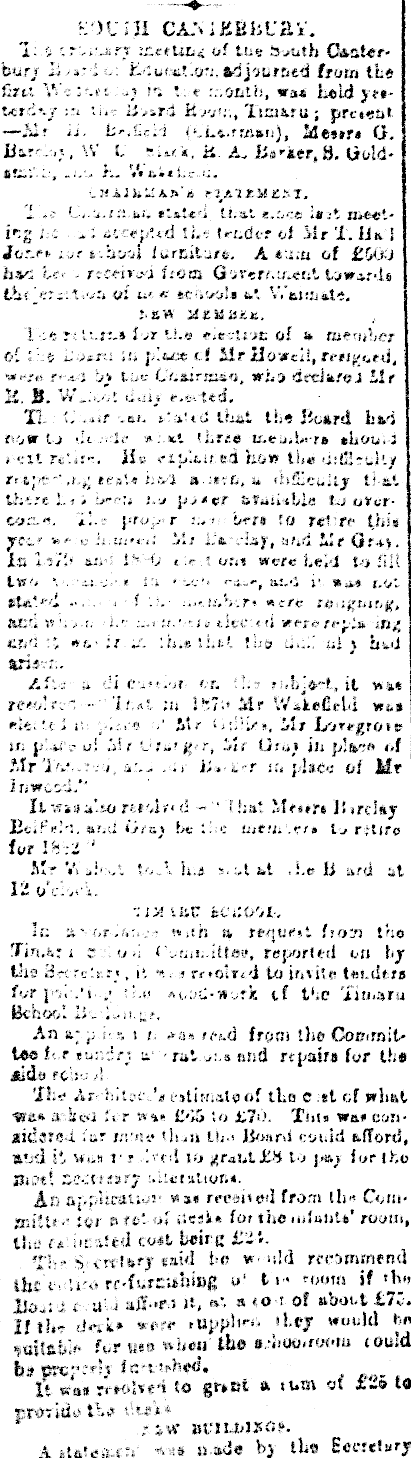 SOUTH CANTERBURY.
The ordinary meeting of the South Canter-
bury Board of Education, adjourned from the
first Wednesday in the month, was held yes-
terday in the Board Room, Timaru; present
—Mr H. Belfield (Chairman), Messrs G.
Barclay, W. C. Black, R. A. Barker, S. Gold-
smith, and E. Wakefield.
CHAIRMAN'S STATEMENT.
The Chairman stated that since last meet-
ing he had accepted the tender of Mr T. Hall
Jones for school furniture. A sum of £500
had been received from Government towards
the erection of new schools at Waimate.
NEW MEMBER.
The returns for the election of a member
of the Board in place of Mr Howell, resigned,
were read by the Chairman, who declared Mr
E. B. duly elected.
The Chairman stated that the Board had
now to decide what three members should
next retire. He explained how the difficulty
respecting seats had arisen, a difficulty that
there had been no power available to over-
come. The proper members to retire this
year were himself, Mr Barclay, and Mr Gray.
In 1879 and 1880 elections were held to fill
two vacancies in each case, and it was not
stated which of the members were resigning,
and whom the members elected were replacing
and it was from this that the difficulty had
arisen.
After a discussion on the subject, it was
resolved—"That in 1879 Mr Wakefield was
elected in place of Mr Gillies, Mr Lovegrove
in place of Mr Granger, Mr Gray in place of
Mr and Mr Barker in place of Mr
Inwood."
It was also resolved—"That Messrs Barclay
Belfield, and Gray be the members to retire
for 1882."
Mr took his seat at the Board at
12 o'clock.
TIMARU SCHOOL.
In accordance with a request from the
Timaru School Committee, reported on by
the Secretary, it was resolved to invite tenders
for painting the wood-work of the Timaru
School Buildings.
An application was read from the Commit-
tee for sundry alterations and repairs for the
side school.
The Architect's estimate of the cost of what
was asked for was £65 to £70. This was con-
sidered far more than the Board could afford,
and it was resolved to grant £8 to pay for the
most necessary alterations.
An application was received from the Com-
mittee for a set of desks for the infants' room,
the estimated cost being £24.
The Secretary said he would recommend
the entire re-furnishing of the room if the
Board could afford it, at a cost of about £75.
If the desks were supplied they would be
suitable for use when the schoolroom could
be properly furnished.
It was resolved to grant a sum of £25 to
provide the desks.
NEW BUILDINGS.
A statement was made by the Secretary